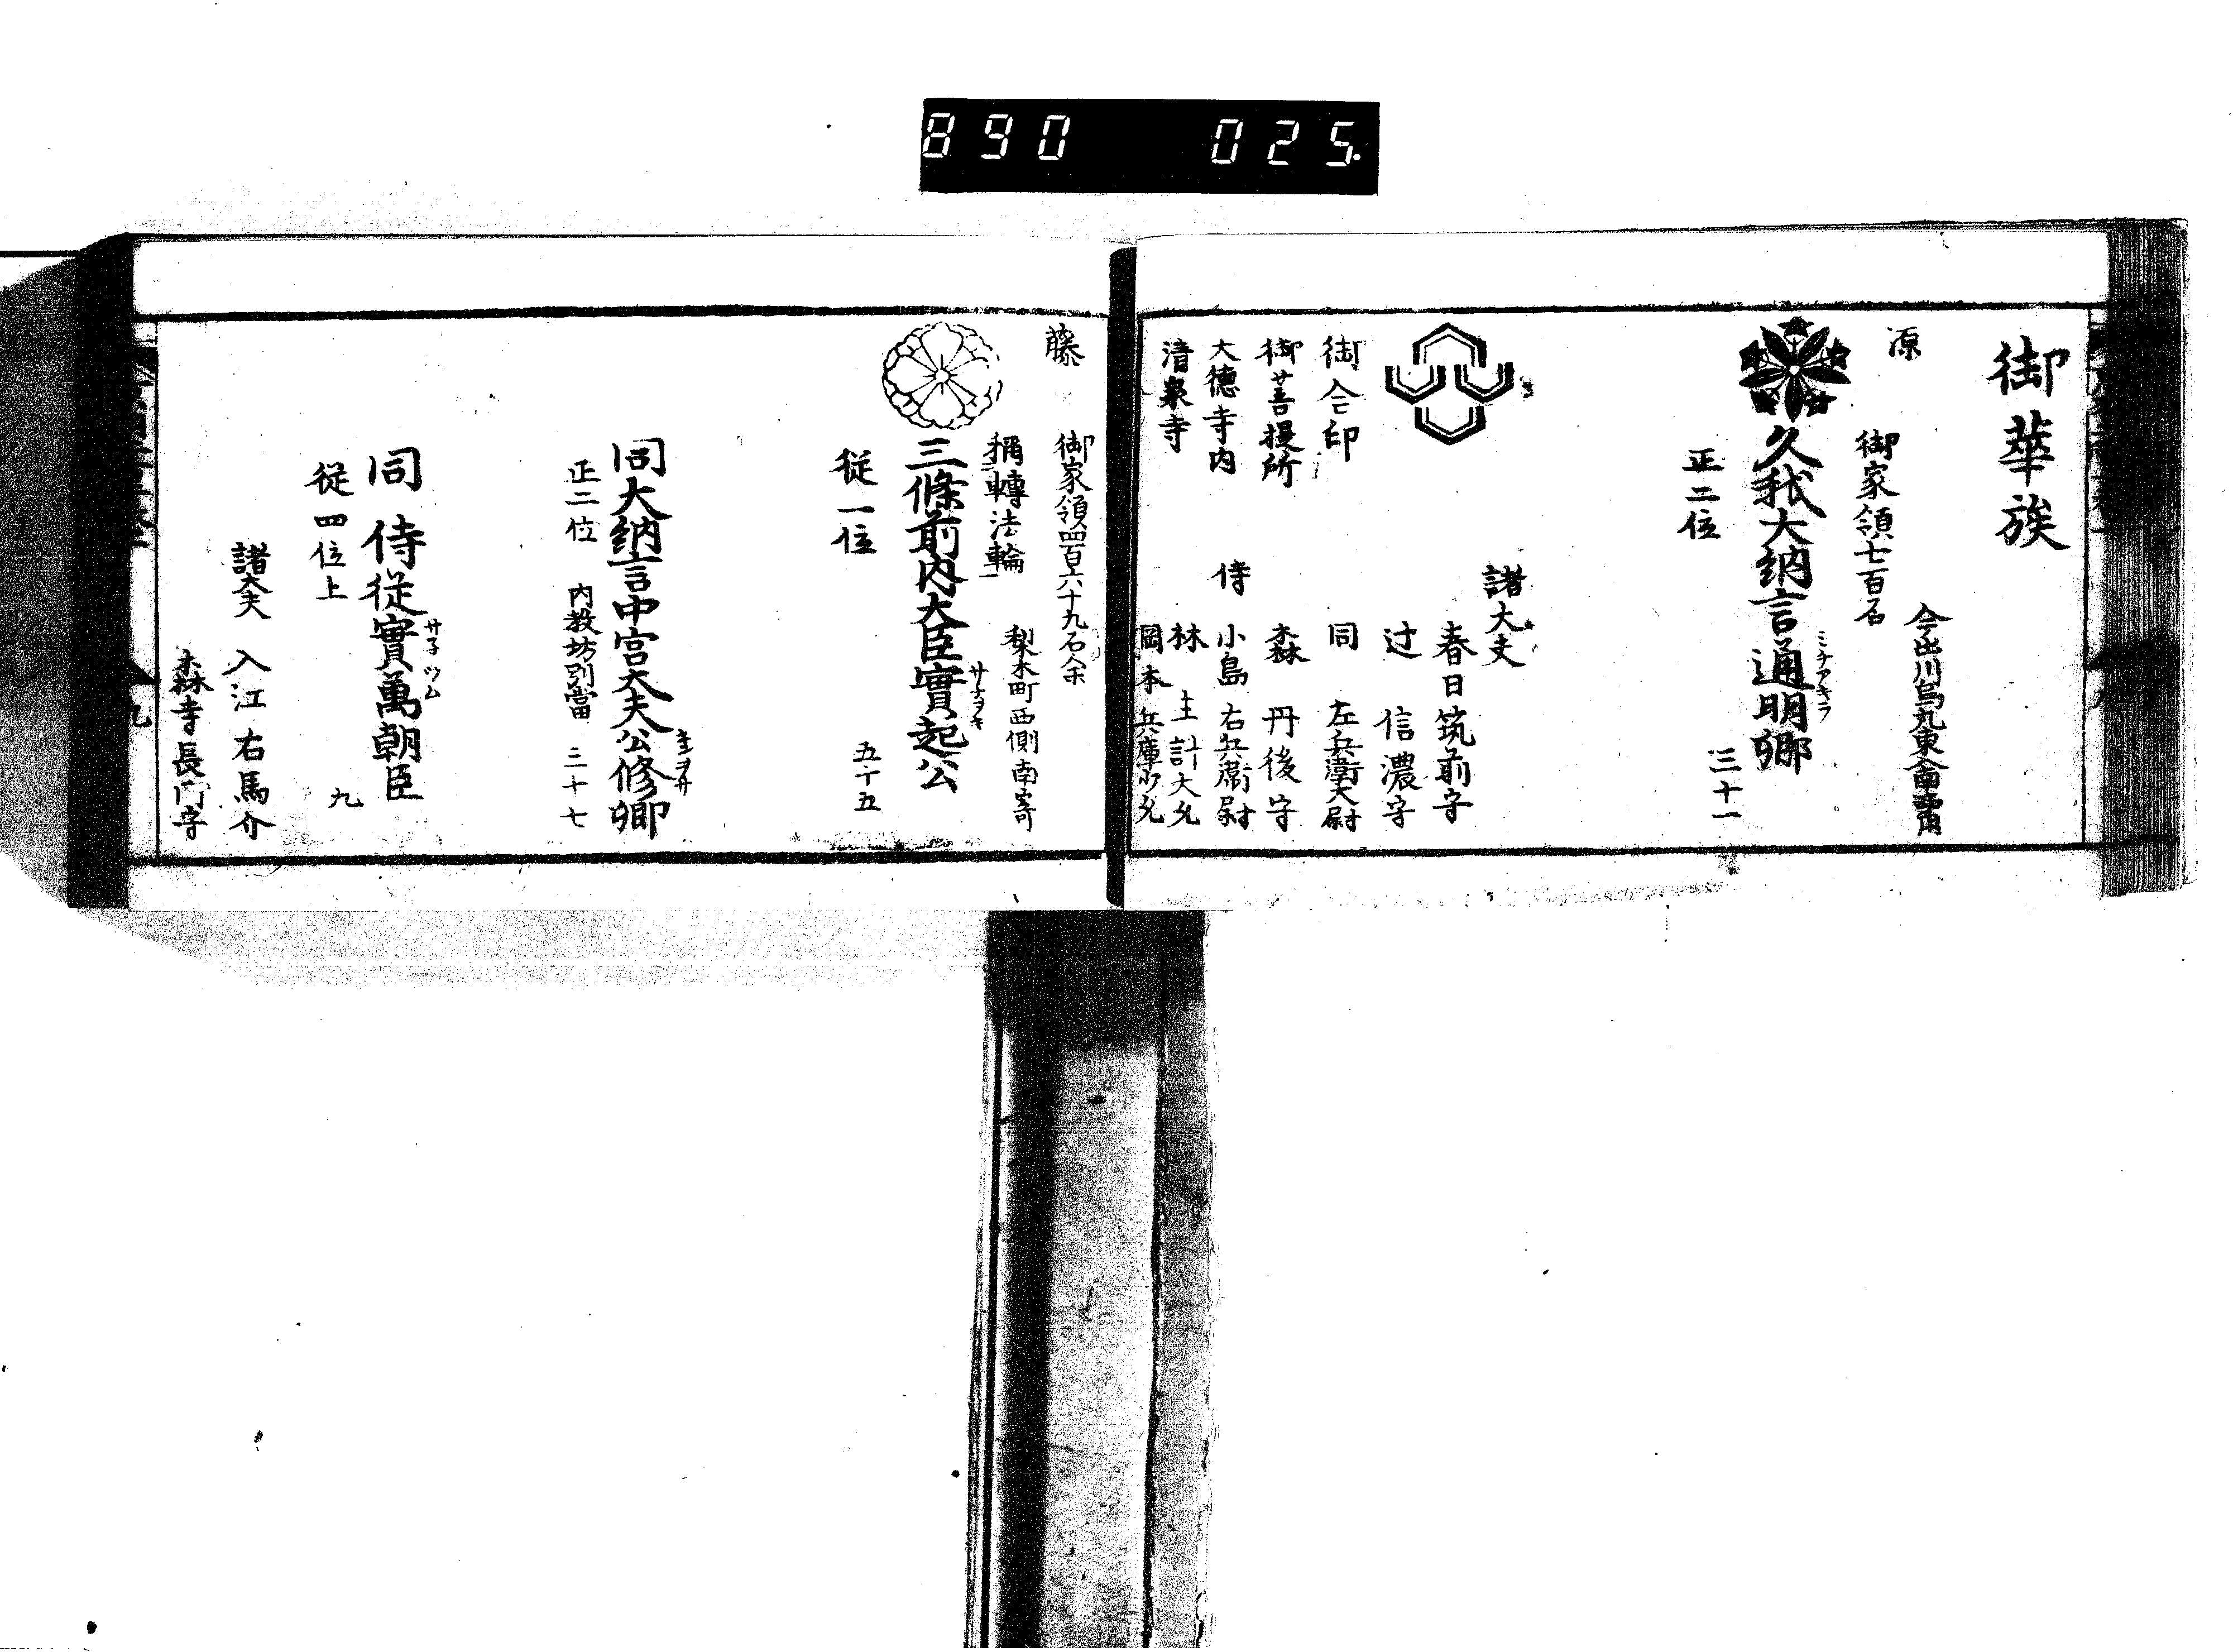 890 025.
御華族
今出川烏丸東入南西角
源
御家領七百石
ミチアキラ
久我大納言通明卿
三十一
正二位
諸大夫
春日筑前守
辻信濃守
御合印
同左兵衛大尉
御菩提所
森丹後守
大德寺内
侍小島右兵衛尉
清泉寺
林主計大允
岡本兵庫少允
藤
御家領四百六十九石余
梨木町西側南寄
稱轉法輪
サ子ヲキ
三條前内大臣實起公
從一位
五十五
キンヲサ
同大納言中宮大夫公修卿
正二位内教坊別當三十七
サ子ツム
同侍從實萬朝臣
從四位上
九
諸大夫入江右馬介
森寺長門守